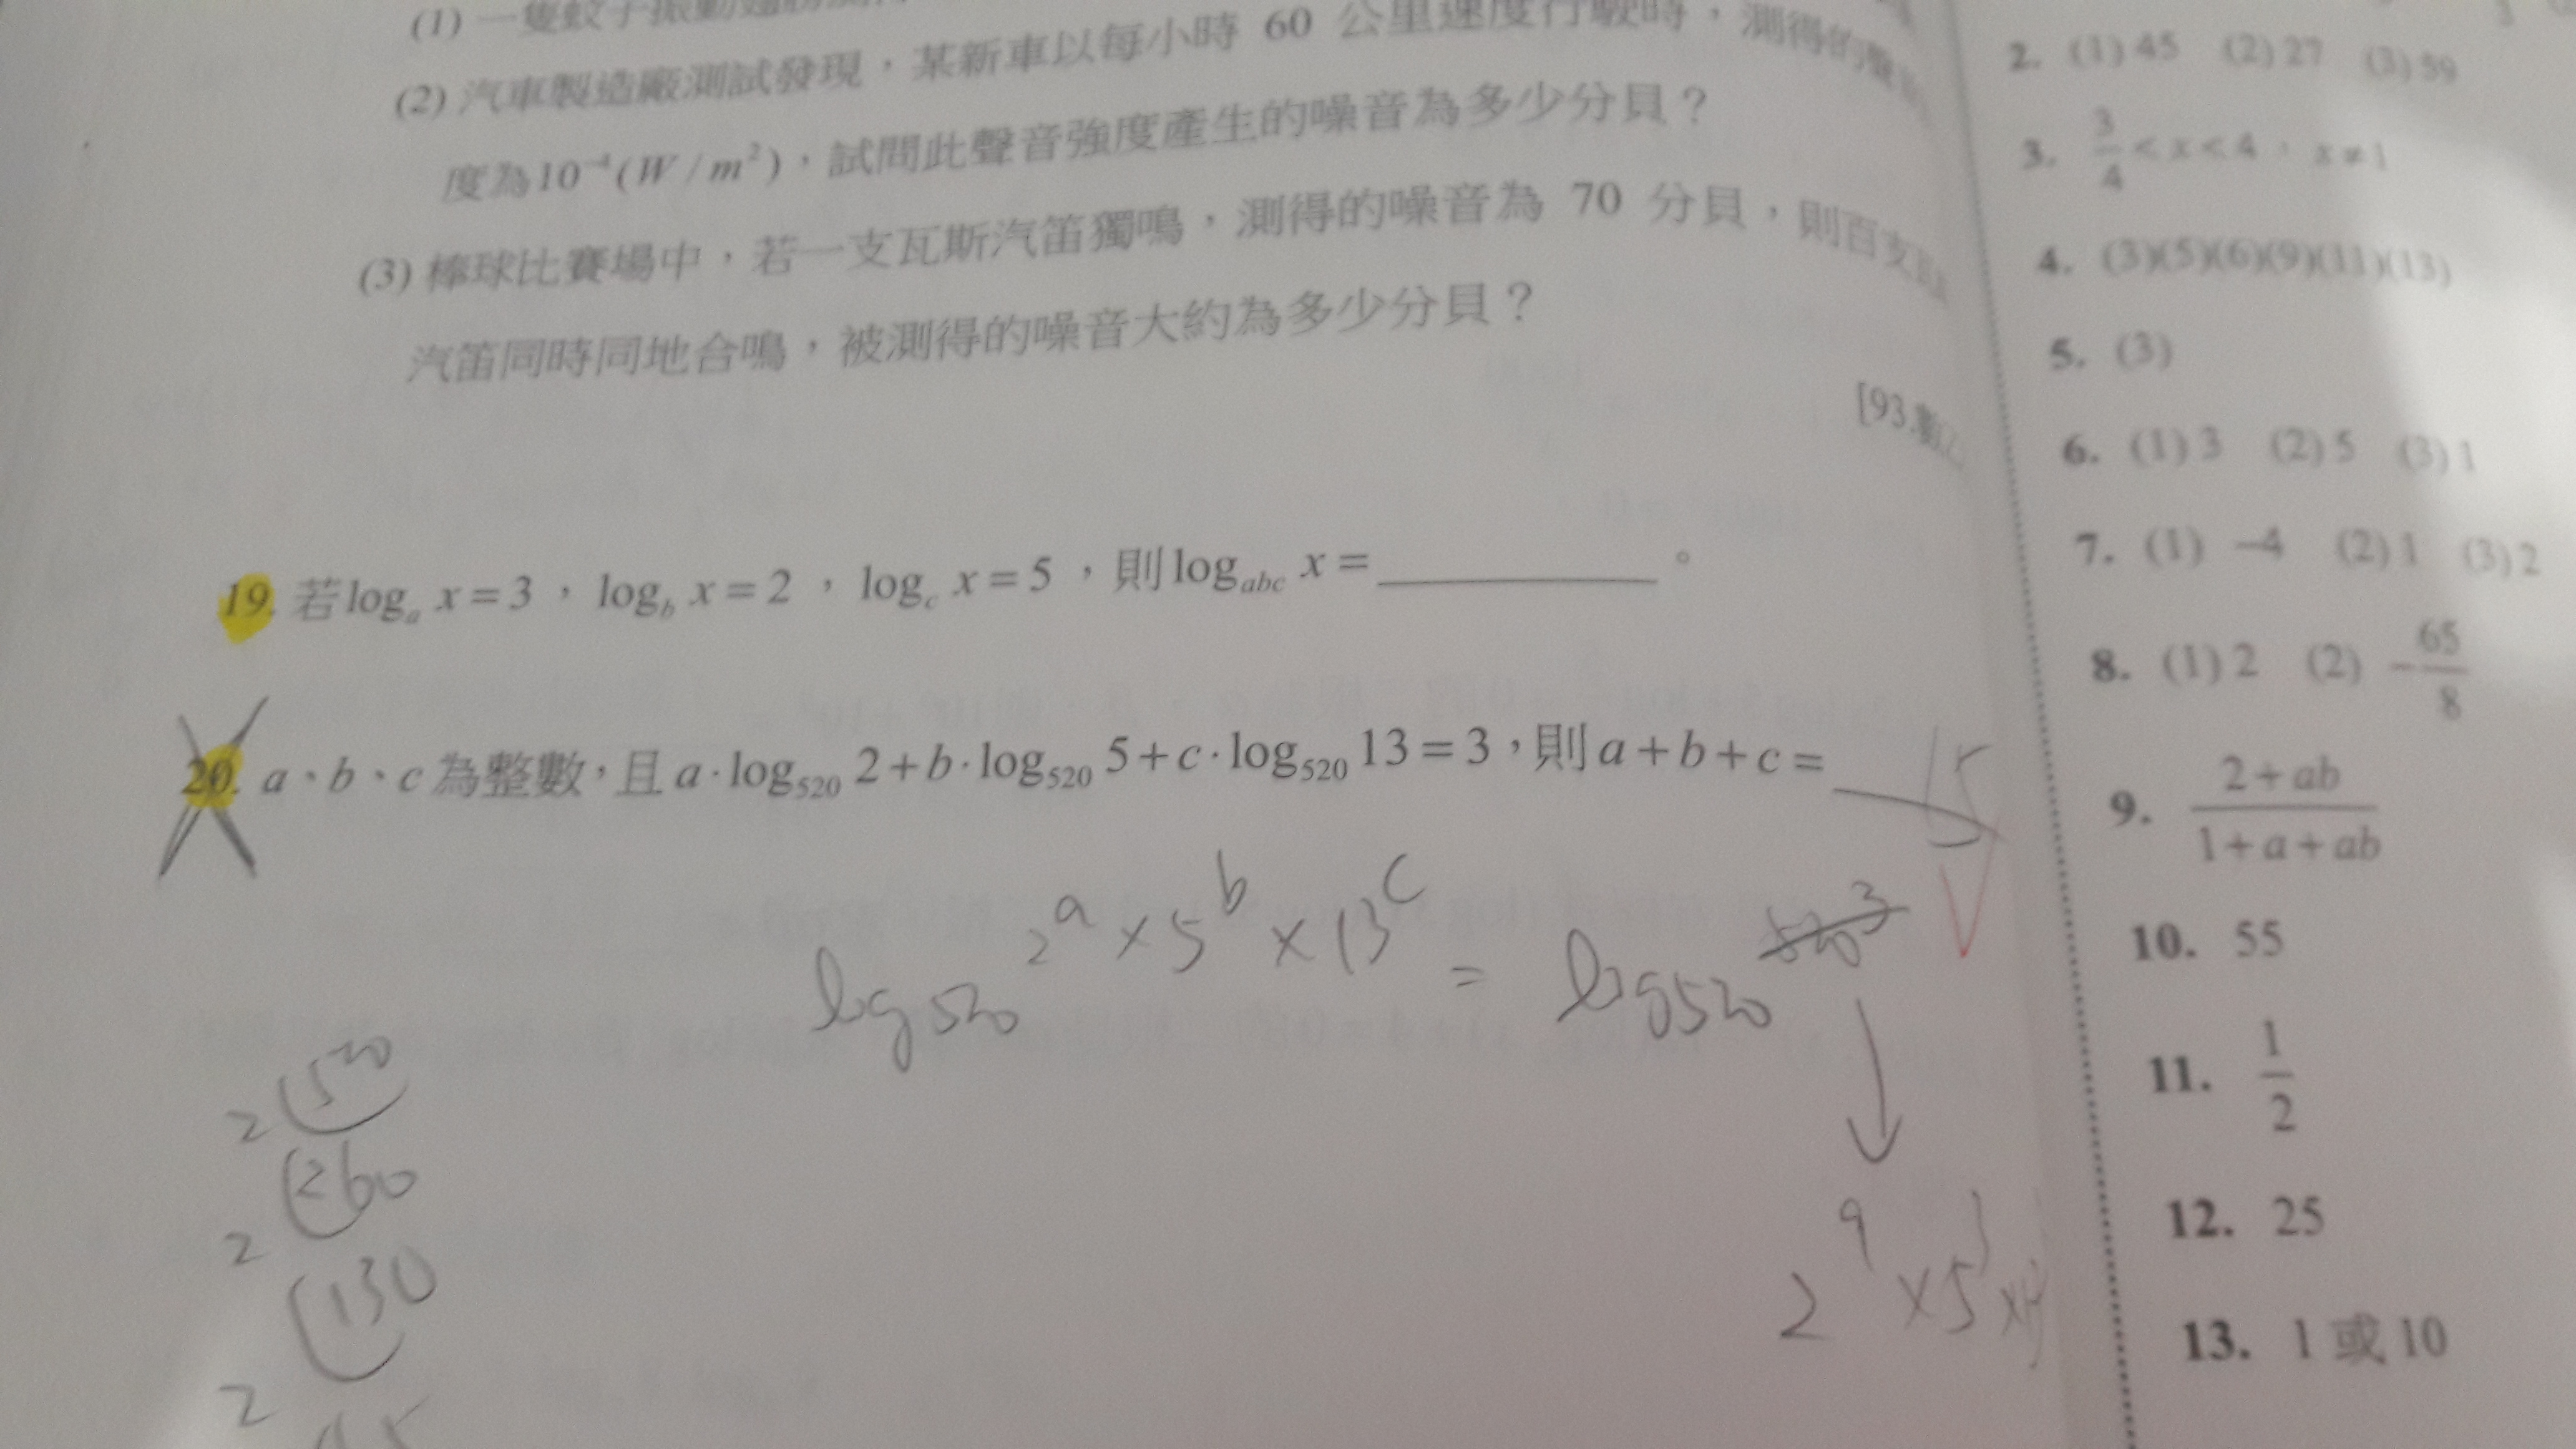 (1) 一隻蚊子振動翅膀
(2) 汽車製造廠測試發現，某新車以每小時 60 公里速度行駛時，測得的聲
度為10⁻⁴(W/m²)，試問此聲音強度產生的噪音為多少分貝？
(3) 棒球比賽場中，若一支瓦斯汽笛獨鳴，測得的噪音為 70 分貝，則百支
汽笛同時同地合鳴，被測得的噪音大約為多少分貝？
[93.
19. 若logₐ x=3，log_b x=2，log_c x=5，則log_abc x=________。
20. a、b、c為整數，且a·log₅₂₀ 2+b·log₅₂₀ 5+c·log₅₂₀ 13=3，則a+b+c= 15
log520 2^a×5^b×13^c = log520 520³
2^9×5^3×
2 520
2 260
2 130
2
2. (1) 45 (2) 27 (3) 59
3. 3/4<x<4，x≠1
4. (3)(5)(6)(9)(11)(13)
5. (3)
6. (1) 3 (2) 5 (3) 1
7. (1) −4 (2) 1 (3) 2
8. (1) 2 (2) −65/8
9. 2+ab/1+a+ab
10. 55
11. 1/2
12. 25
13. 1 或 10